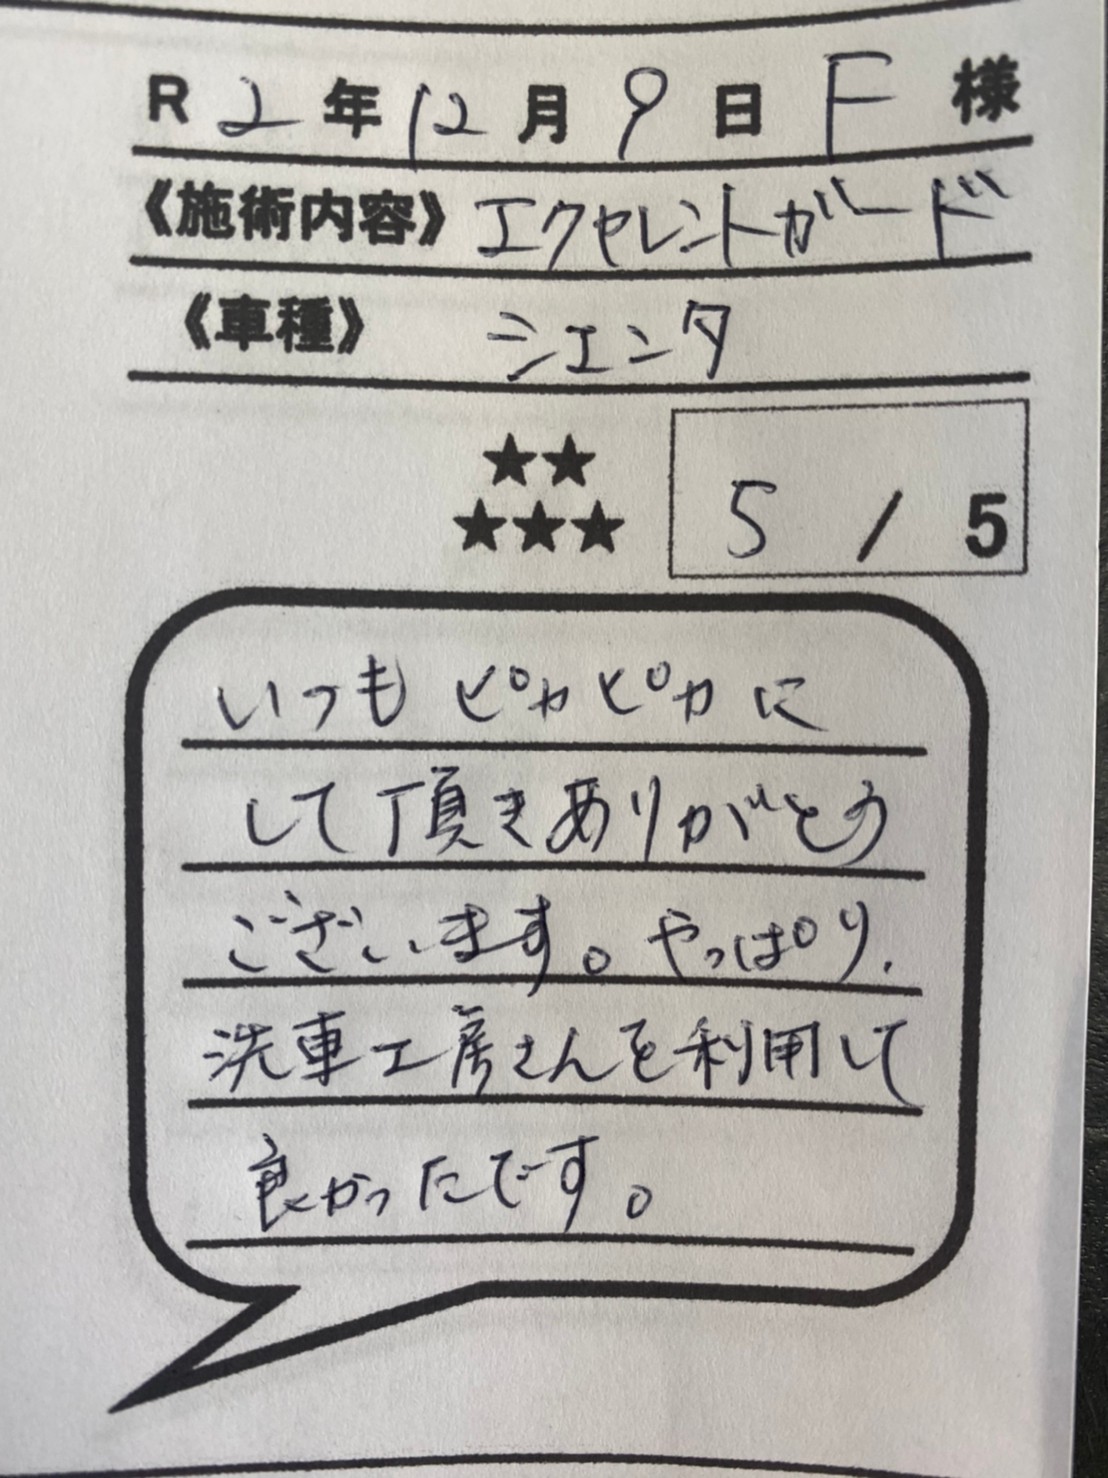 R 2 年 12 月 9 日 F 様
《施術内容》 エクセレントガード
《車種》 シエンタ
★★
★★★ 5 / 5
いつもピカピカに
して頂きありがとう
ございます。やっぱり、
洗車工房さんを利用して
良かったです。